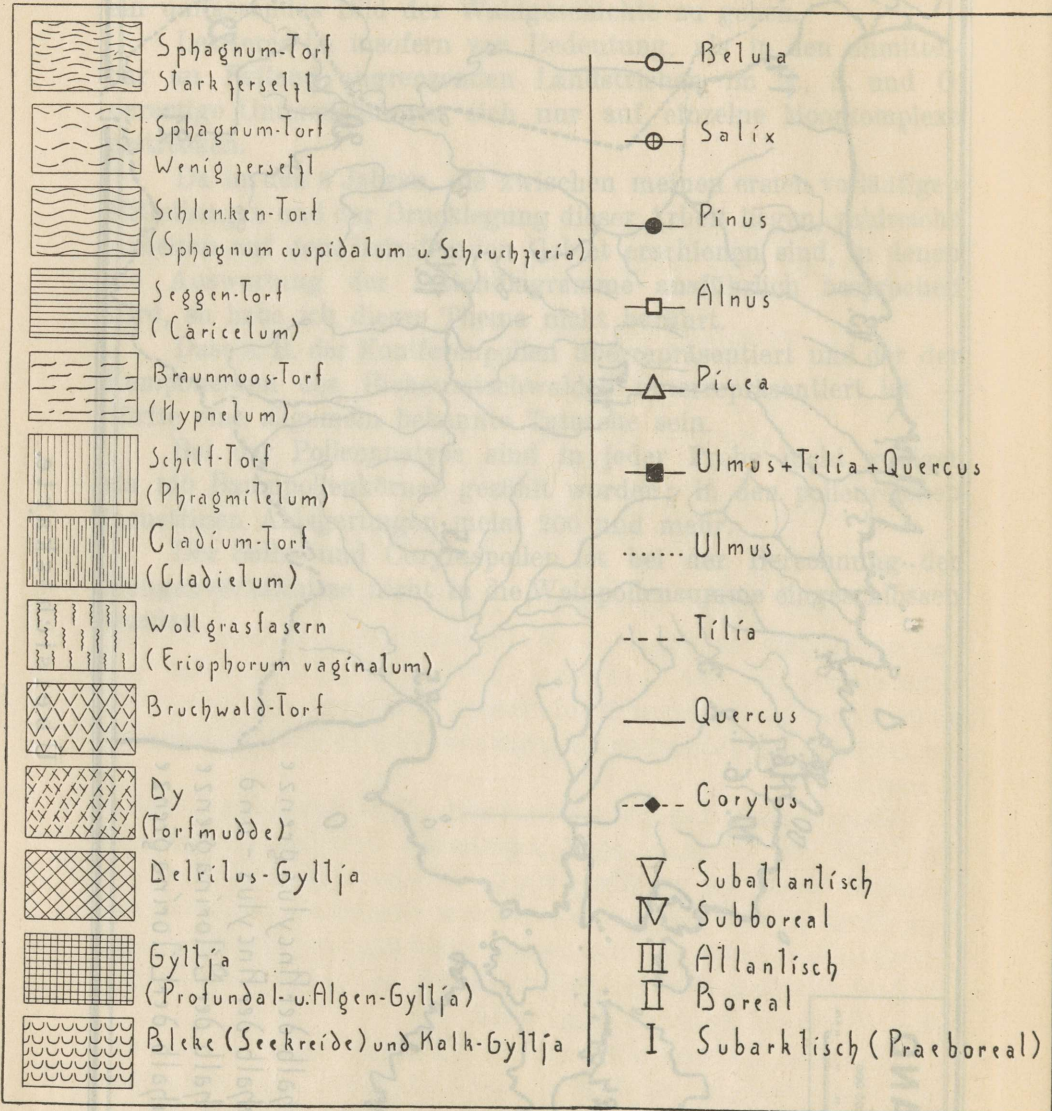 Sphagnum-Torf
Stark zersetzt
Sphagnum-Torf
Wenig zersetzt
Schlenken-Torf
(Sphagnum cuspidatum u. Scheuchzeria)
Seggen-Torf
(Caricetum)
Braunmoos-Torf
(Hypnetum)
Schilf-Torf
(Phragmitetum)
Cladium-Torf
(Cladietum)
Wollgrasfasern
(Eriophorum vaginatum)
Bruchwald-Torf
Dy
(Torfmudde)
Detritus-Gyttja
Gyttja
(Profundal- u. Algen-Gyttja)
Bleke (Seekreide) und Kalk-Gyttja
Betula
Salix
Pinus
Alnus
Picea
Ulmus+Tilia+Quercus
Ulmus
Tilia
Quercus
Corylus
V Subatlantisch
IV Subboreal
III Atlantisch
II Boreal
I Subarktisch (Praeboreal)